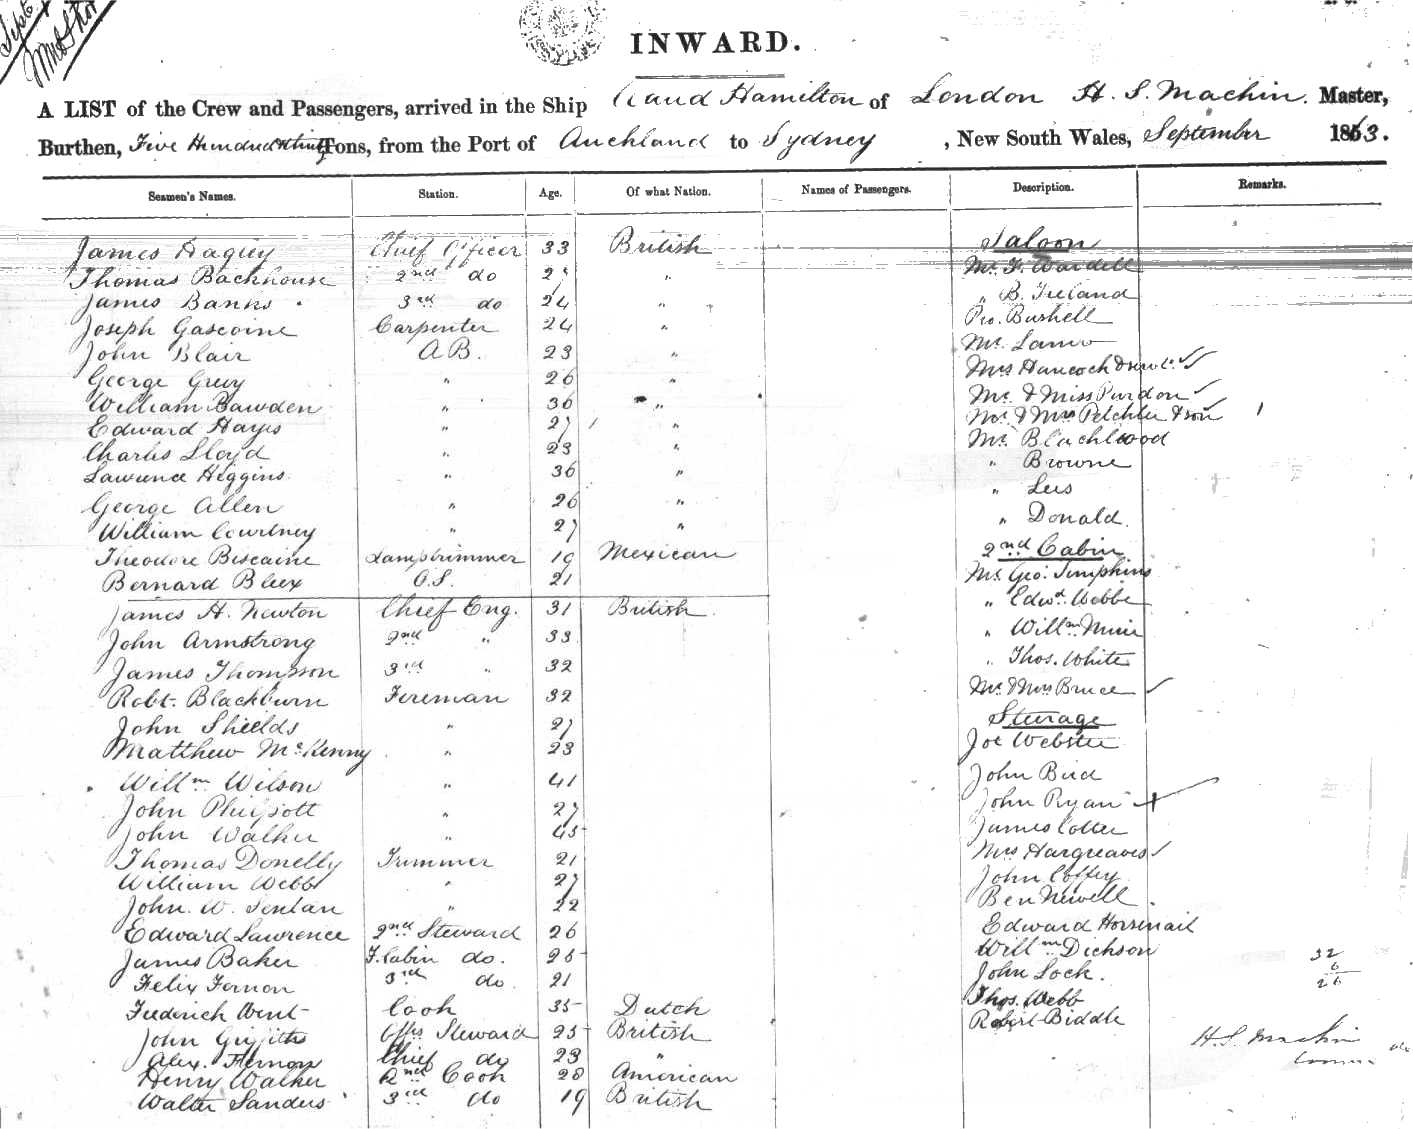 Sept
INWARD.
A LIST of the Crew and Passengers, arrived in the Ship Claud Hamilton of London H. S. Machin. Master,
Burthen, Five Hundred & thirty Tons, from the Port of Auckland to Sydney , New South Wales, September 1863.
Seamen's Names. Station. Age. Of what Nation. Names of Passengers. Description. Remarks.
James Chief Officer 33 British Saloon
Thomas Backhouse 2nd do 27 " Mr. F. Wardell
James Banks 3rd do 24 " " B. Ireland
Joseph Gascoine Carpenter 24 " Bushell
John Blair A B. 23 " Mr.
George Grey " 26 " Mrs Hancock &
William Bawden " 36 " Mr. & Miss Purdon
Edward Hayes " 27 " Mr. & Mrs & son
Charles Lloyd " 23 " Mr. Blackwood
Lawrence Higgins " 36 " " Browne
George Allen " 26 " " Lees
William Courtney " 27 " " Donald.
Theodore Biscaine Lamptrimmer 19 Mexican 2nd Cabin
Bernard O.S. 21 Mr. Geo. Simpkins
James H. Newton Chief Eng. 31 British " Edwd. Webbe
John Armstrong 2nd " 33 " Willm. Muir
James Thompson 3rd " 32 " Thos. White
Robt. Blackburn Fireman 32 Mr. & Mrs Bruce
John Shields " 27 Steerage
Matthew McKenny " 23 Joe Webster
Willm Wilson " 41 John Bird
John Philpott " 27 John Ryan
John Walker " 45 James Cotter
Thomas Donelly Trimmer 21 Mrs Hargreaves
William Webb " 27 John Coffey
John. W. " 22 Ben Newell
Edward Lawrence 2nd Steward 26 Edward Horsenail
James Baker F. Cabin do. 25 Willm Dickson 32
Felix Fernon 3rd do. 21 John Lock. 6
Frederick Went Cook 35 Dutch Thos. Webb 26
John Griffiths Offrs Steward 25 British Robert Biddle
Alex. Chief do 23 " H. S. Machin
Henry Walker 2nd Cook 20 American
Walter Sanders 3rd do 19 British